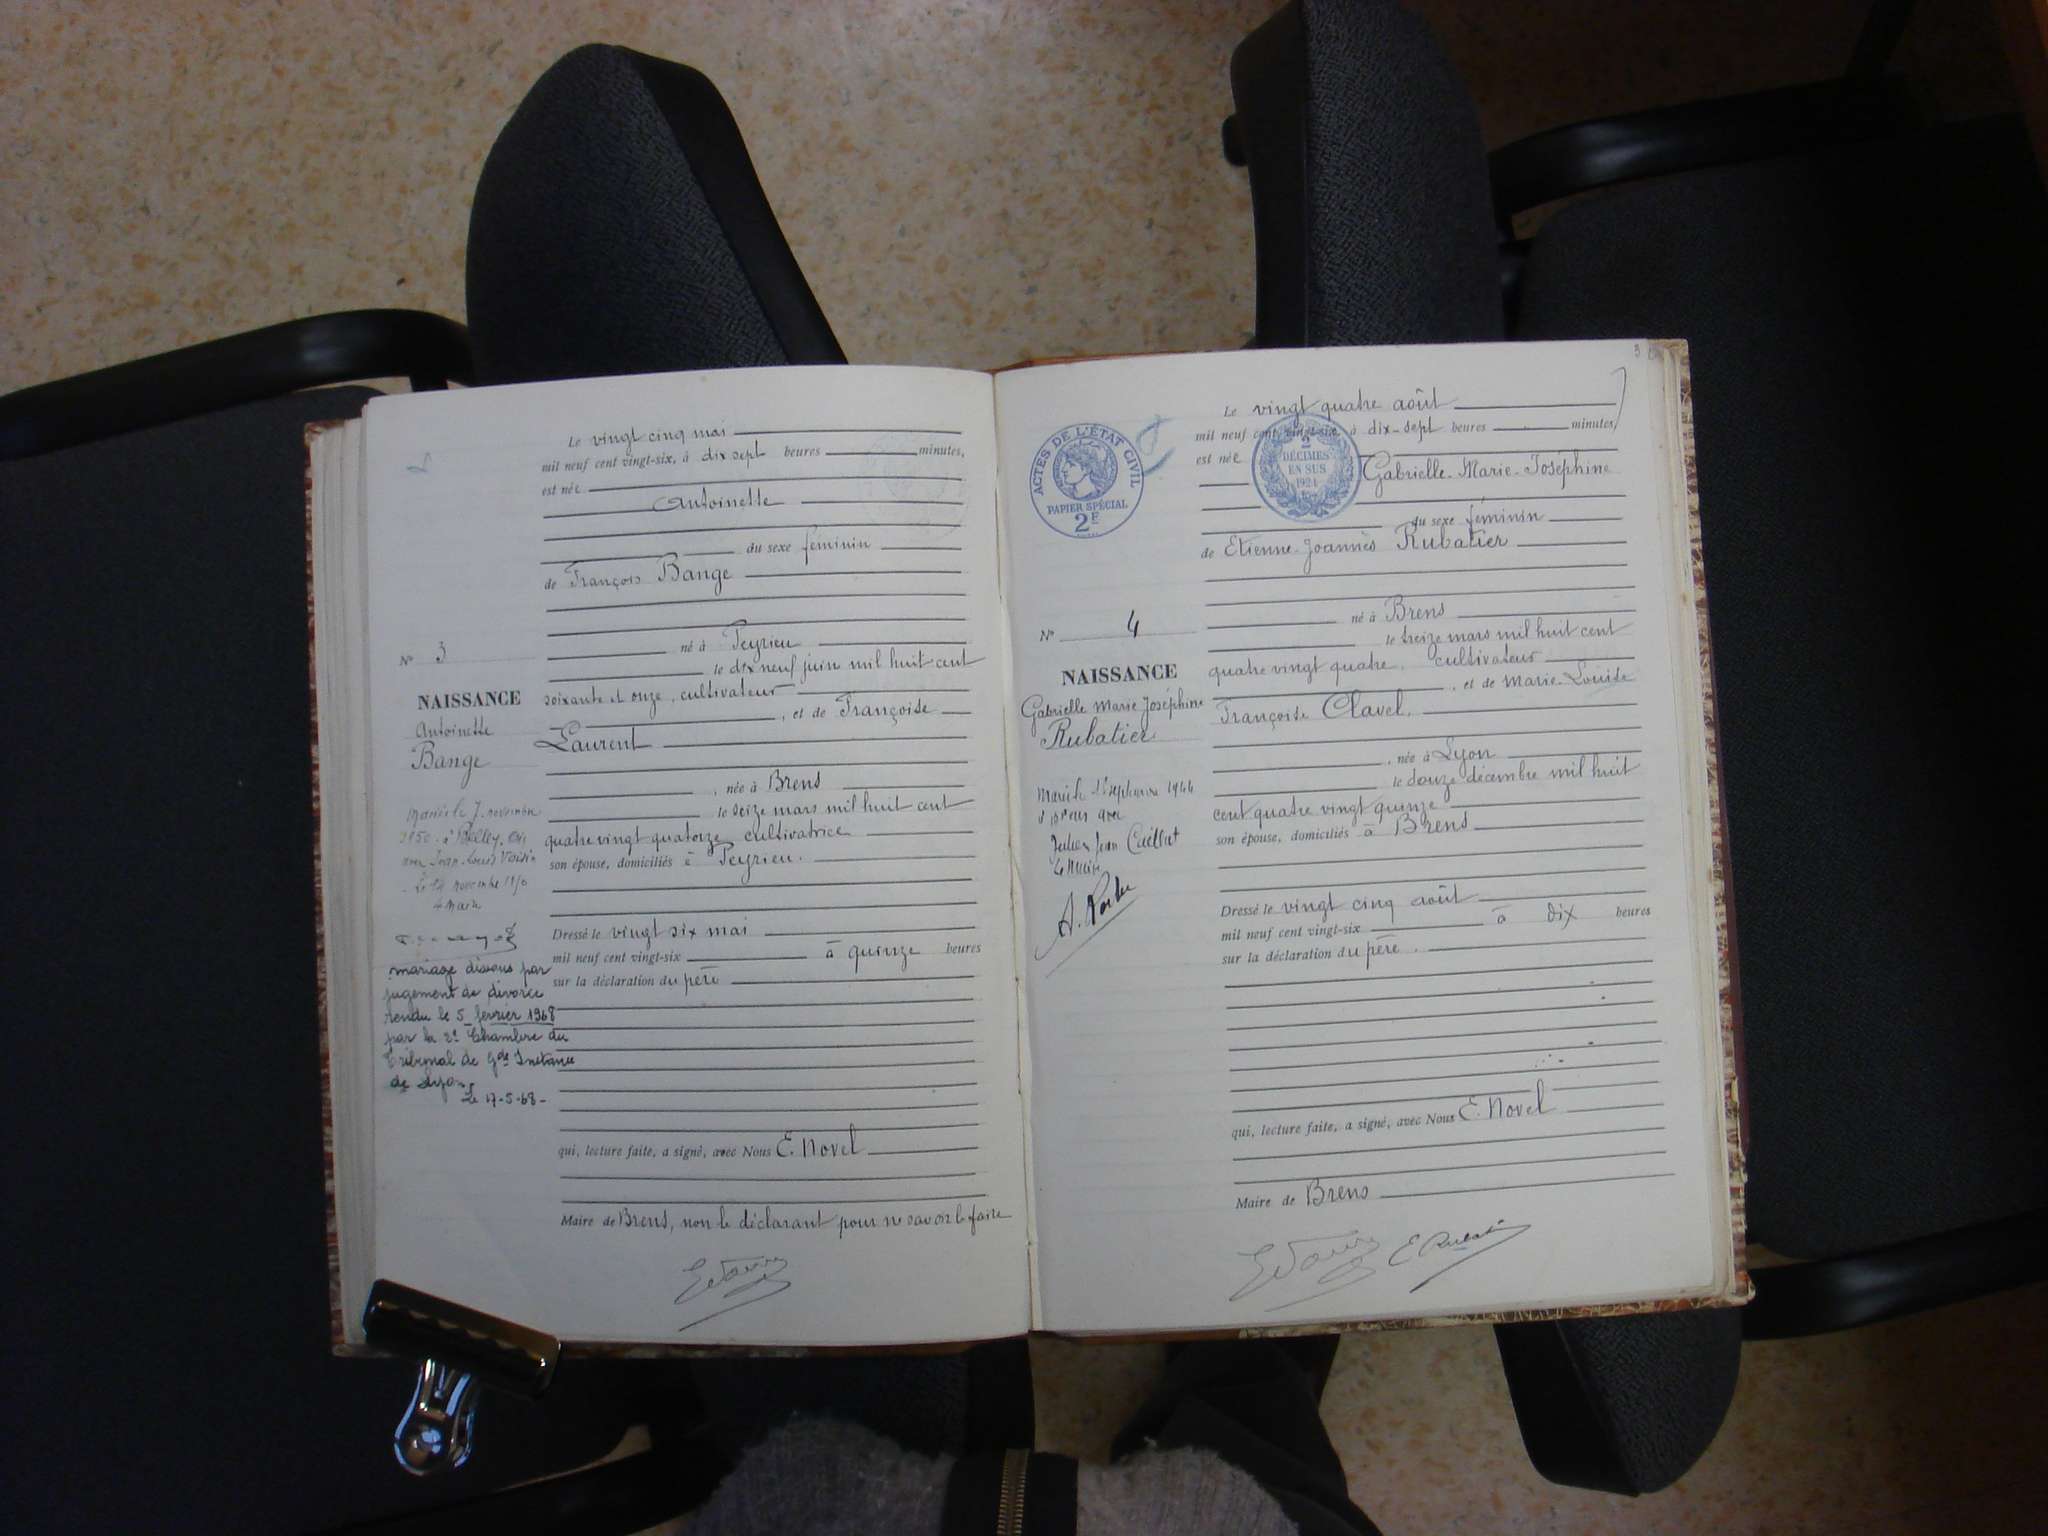 Le vingt cinq mai
mil neuf cent vingt-six, à dix sept heures minutes,
est née
Antoinette
du sexe féminin
de François Bange
né à Peyrieu
le dix neuf juin mil huit cent
soixante et onze, cultivateur
, et de Françoise
Laurent
, née à Brens
le seize mars mil huit cent
quatre vingt quatorze cultivatrice
son épouse, domiciliés à Peyrieu.
Dressé le vingt six mai
mil neuf cent vingt-six à quinze heures
sur la déclaration du père
qui, lecture faite, a signé, avec Nous E. Novel
Maire de Brens, non le déclarant pour ne savoir le faire
N° 3
NAISSANCE
Antoinette
Bange
Mariée le 7 novembre
1950 à Belley
avec Jean Louis
Le 14 novembre
mariage dissous par
jugement de divorce
rendu le 5 février 1968
par la 2e Chambre du
Tribunal de Gde Instance
de Lyon
Le 17-5-68-
3
Le vingt quatre août
mil neuf cent vingt-six, à dix-sept heures minutes
est née Gabrielle-Marie-Joséphine
du sexe féminin
de Etienne-Joannès Rubatier
né à Brens
le treize mars mil huit cent
quatre vingt quatre, cultivateur
, et de Marie-Louise
Françoise Clavel,
, née à Lyon
le douze décembre mil huit
cent quatre vingt quinze
son épouse, domiciliés à Brens
Dressé le vingt cinq août
mil neuf cent vingt-six à dix heures
sur la déclaration du père.
qui, lecture faite, a signé, avec Nous E. Novel
Maire de Brens
ACTES DE L'ÉTAT CIVIL
PAPIER SPÉCIAL
2F
2
DÉCIMES
EN SUS
1924
N° 4
NAISSANCE
Gabrielle Marie Joséphine
Rubatier
Mariée le septembre 1944
à avec
Jean
Le Maire